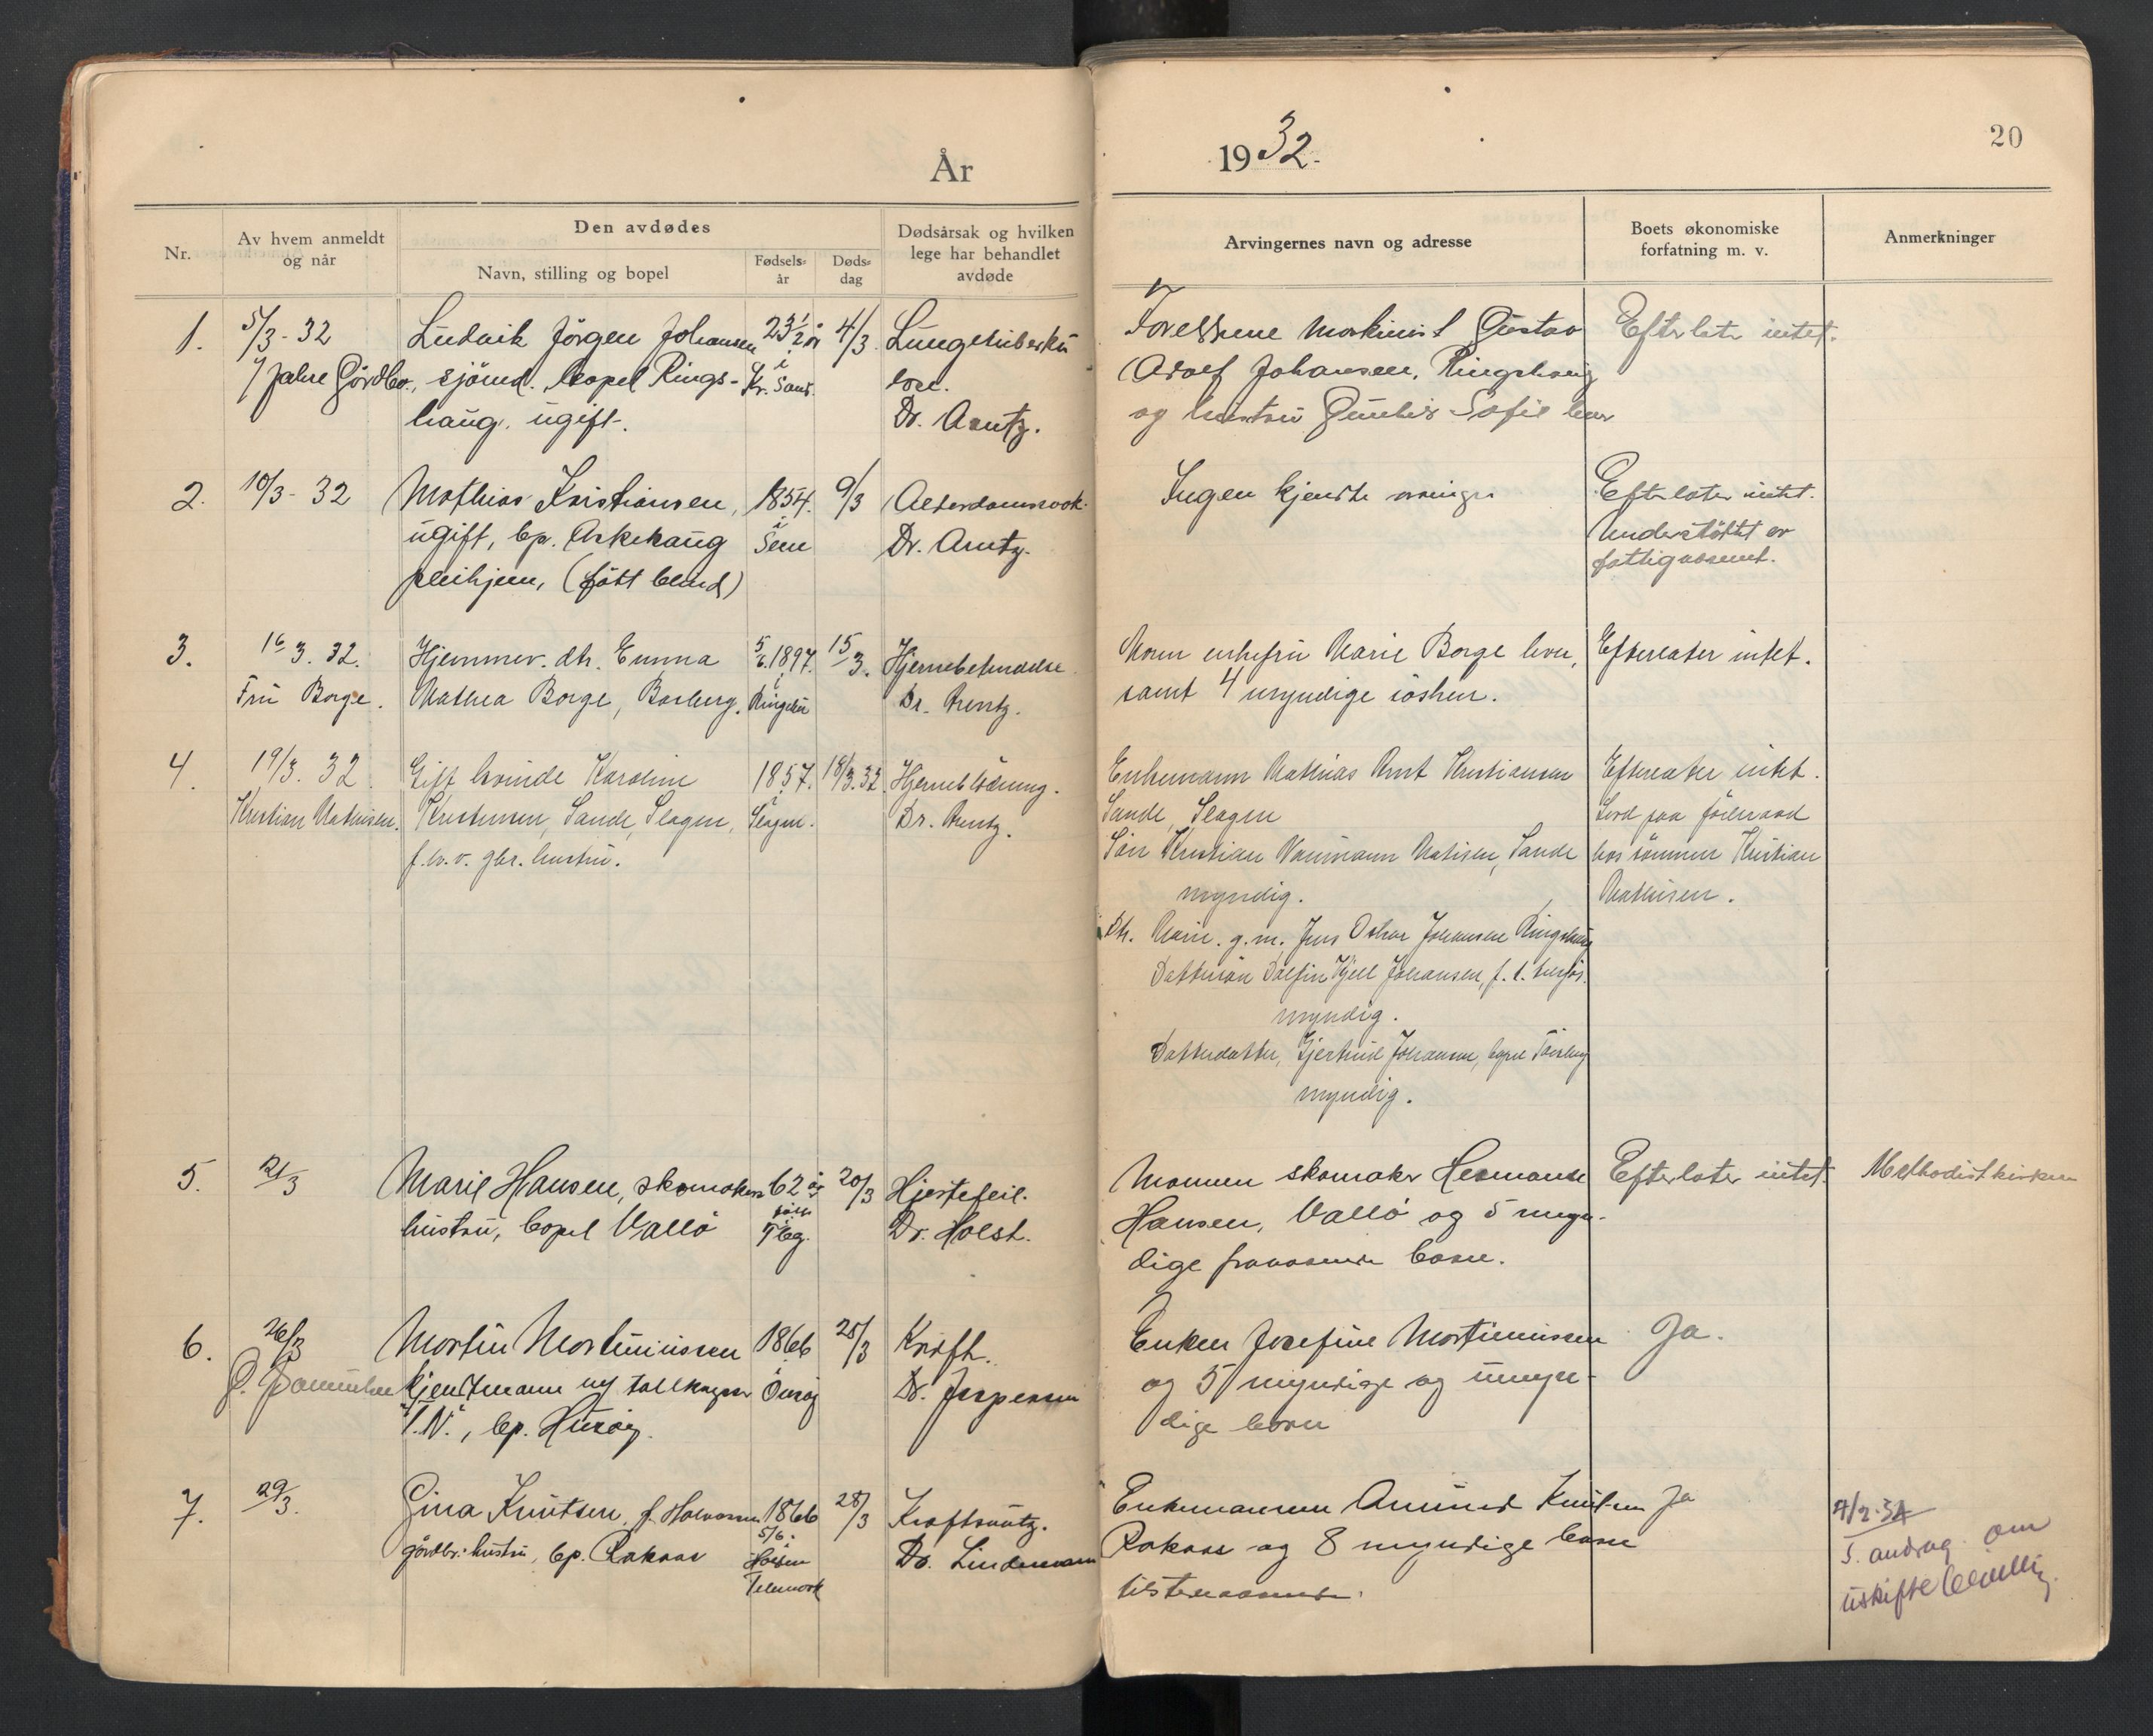 År 1932.
20
Nr.
Av hvem anmeldt
og når
Den avdødes
Navn, stilling og bopel
Fødsels-
år
Døds-
dag
Dødsårsak og hvilken
lege har behandlet
avdøde
Arvingernes navn og adresse
Boets økonomiske
forfatning m. v.
Anmerkninger
1.
5/3 - 32
Ludvik Jörgen Johansen
sjömd. bopel Rings-
haug. ugift.
23 1/2 år
i
4/3
Lungetuberku
lose.
Dr. Arntz.
Foreldrene maskinist Gustav
Adolf Johansen, Ringshaug
og hustru Sofie lever
Efterlater intet.
2.
10/3 - 32
Mathias Kristiansen,
ugift, bp. Askehaug
pleihjem, (født blind)
1854.
i
Sem
9/3
Alderdomssvak.
Dr. Arntz.
Ingen kjendte arvinger
Efterlater intet.
Understöttet av
fattigvesenet.
3.
16/3. 32.
Fru Borge.
Hjemmev. dtr. Emma
Mathea Borge, Basberg.
5/6. 1897.
i
15/3.
Hjernebetendelse
Dr. Arentz.
Moren enkefru Marie Borge lever,
samt 4 myndige sösken.
Efterlater intet.
4.
19/3. 32
Kristian Mathisen.
Gift kvinde Karoline
Kristensen, Sande, Slagen,
f. hv. v. gbr. hustru.
1857.
i
Slagen.
18/3. 32.
Hjerneblödning.
Dr. Arentz.
Enkemann Mathias Arnt Kristiansen
Sande, Slagen
Sön Kristian Mathisen, Sande
myndig.
Dtr. Marie. g. m. Jens Oskar Johansen Ringshaug
Dattersön Dalfin Kjell Johansen, f. t. tilsjös.
myndig.
Datterdatter, Gjertrud Johansen, bopel Tönsberg
myndig.
Efterlater intet.
Levd paa föderaad
hos sönnen Kristian
Mathisen.
5.
21/3
Marie Hansen, skomakers
hustru, bopel Vallö
62 år
født
i
Tbg.
20/3
Hjertefeil.
Dr. Holst.
Mannen skomaker Hermansen
Hansen, Vallö og 5 myn-
dige fraværende barn.
Efterlater intet.
Methodistkirken
6.
26/3
Martin Martiniussen
kjentmann ved tallkagen
"V.N.", bp. Husöy.
1866
25/3
Kræft.
Dr. Jespersen
Enken Josefine Martiniussen
og 5 myndige og umyn-
dige barn
Ja.
7.
29/3.
Gina Knutsen, f. Halvorsen
gårdbr. hustru, bp. Rakaas
1866
5/6.
i
Telemark
28/3
Kræftsvulst.
Dr. Lindemann
Enkemannen Amund Knutsen
Rakaas og 8 myndige barn
tilstedeværende.
Ja
S. andrag om
uskiftebevilling.